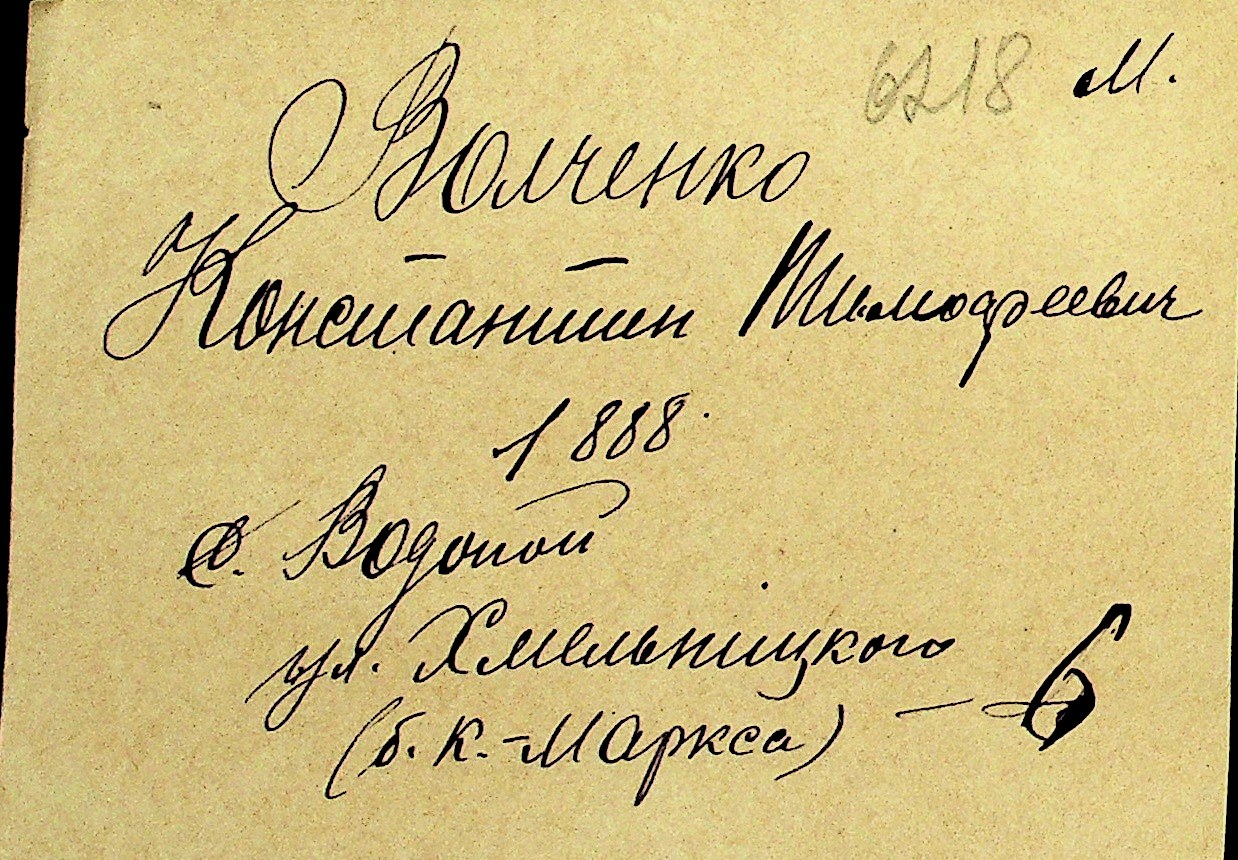 6218 м.
Волченко
Константин Тимофеевич
1888.
с. Водопой
ул. Хмельніцкого
(б. К.-Маркса) — 6